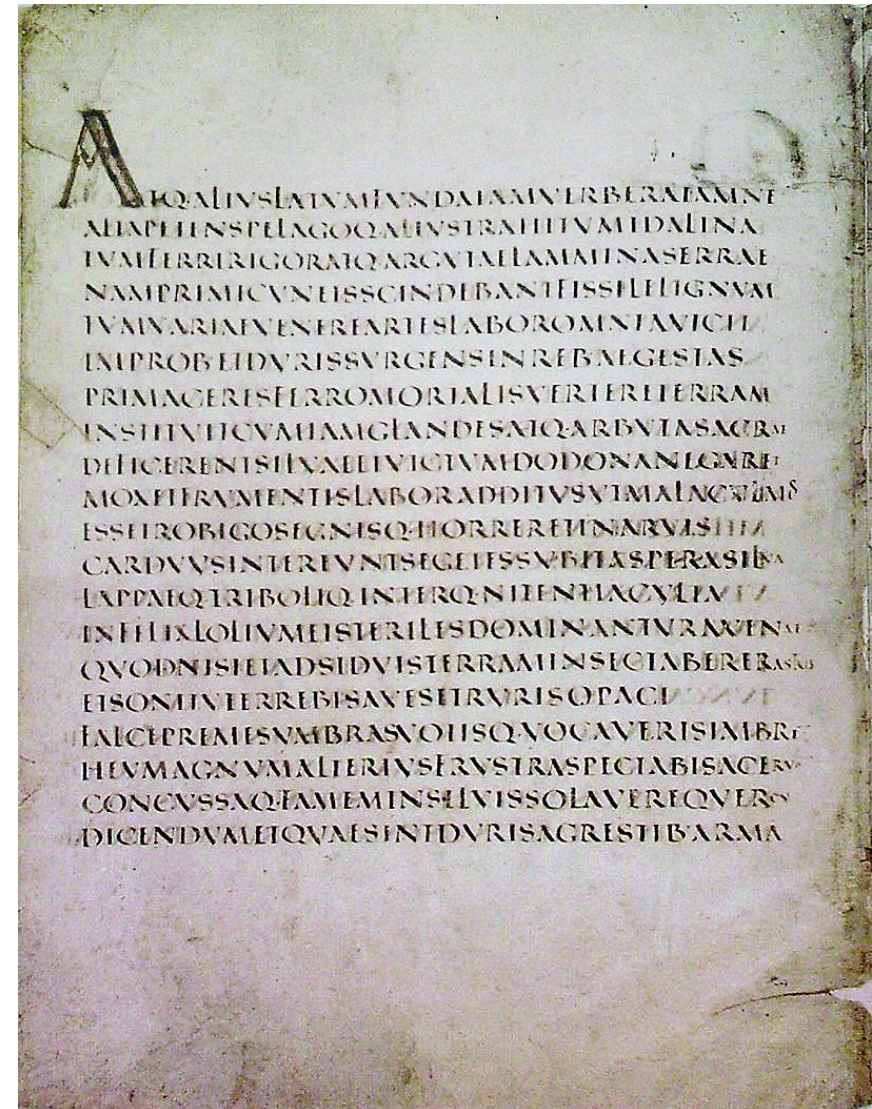 ATQ·ALIVSLATVMFVNDAIAMVERBERATAMNE
ALTAPETENSPELAGOQ·ALIVSTRAHITVMIDALINA
TVMFERRIRIGORATQ·ARGVTAELAMMINASERRAE
NAMPRIMICVNEISSCINDEBANTFISSILELIGNVM
TVMVARIAEVENEREARTESLABOROMNIAVICIT
IMPROB·ETDVRISSVRGENSINREB·AEGESTAS
PRIMACERESFERROMORTALISVERTERETERRAM
INSTITVITCVMIAMGLANDESATQ·ARBVTASACRAE
DEFICERENTSILVAEETVICTVMDODONANEGARET
MOXETFRVMENTISLABORADDITVSVTMALA
ESSETROBIGOSEGNISQ·HORRERETINARVIS
CARDVVSINTEREVNTSEGETESSVBITASPERASILVA
LAPPAEQ·TRIBOLIQ·INTERQ·NITENTIACVLTA
INFELIXLOLIVMETSTERILESDOMINANTVRAVENAE
QVODNISIETADSIDVISTERRAMINSECTABERERASTRIS
ETSONITVTERREBISAVESETRVRISOPACI
FALCEPREMESVMBRASVOTISQ·VOCAVERISIMBRE
HEVMAGNVMALTERIVSFRVSTRASPECTABISACERVO
CONCVSSAQ·FAMEMINSILVISSOLAVEREQVERCV
DICENDVMETQVAESINTDVRISAGRESTIB·ARMA